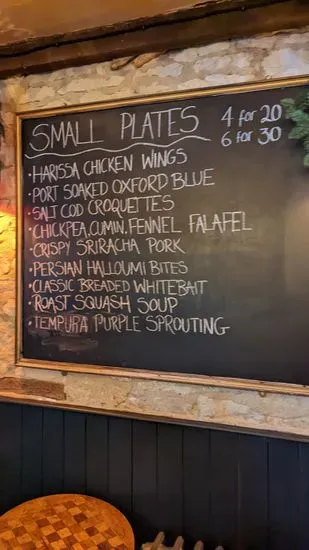 SMALL PLATES 4 for 20
6 for 30
• HARISSA CHICKEN WINGS
• PORT SOAKED OXFORD BLUE
• SALT COD CROQUETTES
• CHICKPEA, CUMIN, FENNEL FALAFEL
• CRISPY SRIRACHA PORK
• PERSIAN HALLOUMI BITES
• CLASSIC BREADED WHITEBAIT
• ROAST SQUASH SOUP
• TEMPURA PURPLE SPROUTING